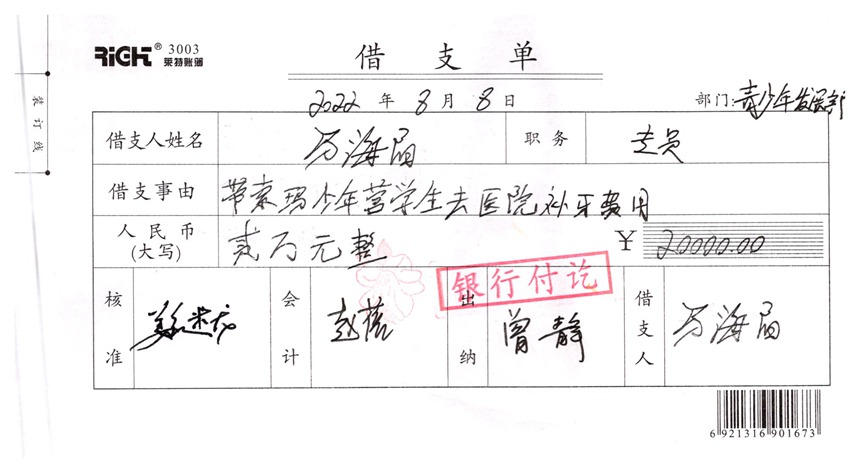 RiGHT® 3003
莱特账簿
借支单
2022年8月8日
部门:青少年发展部
装订线
借支人姓名 万海眉 职务 专员
借支事由 带索玛少年营学生去医院补牙费用
人民币(大写) 贰万元整 ¥20000.00
银行付讫
核准 会计 赵蓓 出纳 曾静 借支人 万海眉
6 921316 901673